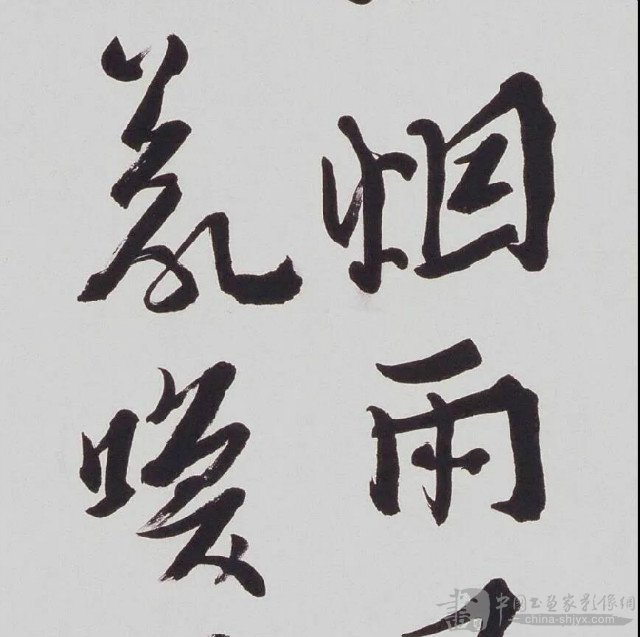 烟雨
荒暖
中国书画家影像網
china-shjyx.com